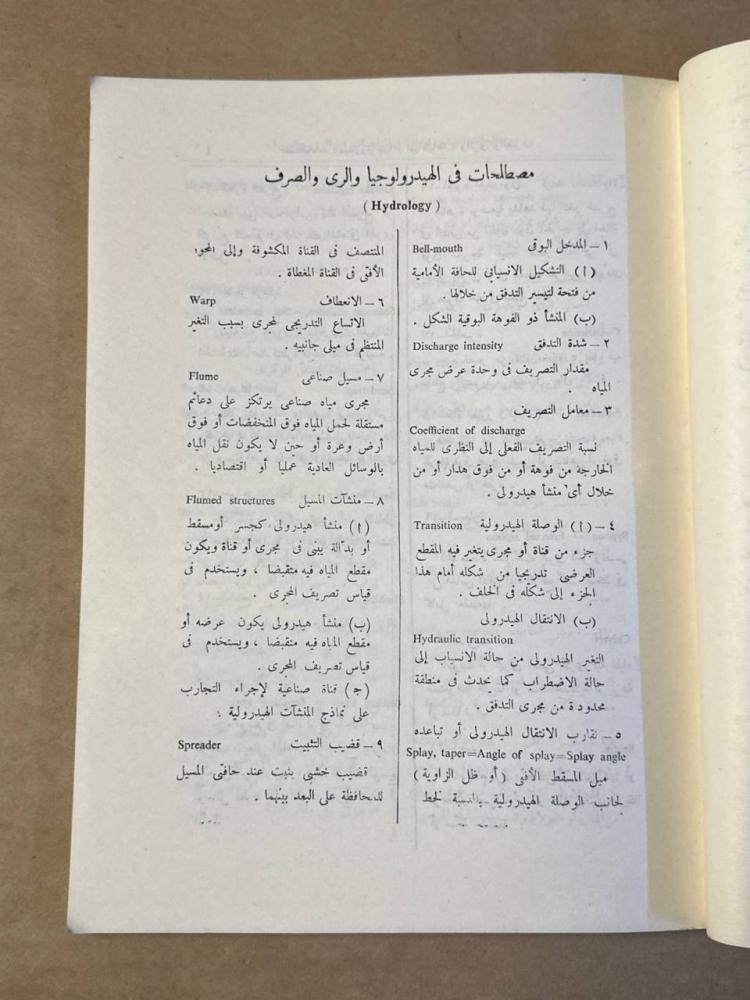 مصطلحات فى الهيدرولوجيا والرى والصرف
( Hydrology )
١ – المدخل البوقى Bell-mouth
( ا ) التشكيل الانسيابي للحافة الأمامية
من فتحة لتيسير التدفق من خلالها .
(ب) المنشأ ذو الفوهة البوقية الشكل .
٢ – شدة التدفق Discharge intensity
مقدار التصريف فى وحدة عرض مجرى
المياه .
٣ – معامل التصريف
Coefficient of discharge
نسبة التصريف الفعلى إلى النظرى للمياه
الخارجه من فوهة أو من فوق هدار أو من
خلال أى منشأ هيدرولى .
٤ – ( ا ) الوصلة الهيدرولية Transition
جزء من قناة أو مجرى يتغير فيه المقطع
العرضى تدريجيا من شكله أمام هذا
الجزء إلى شكله فى الخلف .
(ب) الانتقال الهيدرولى
Hydraulic transition
التغير الهيدرولى من حالة الانسياب إلى
حالة الاضطراب كما يحدث فى منطقة
محدودة من مجرى التدفق .
٥ – تقارب الانتقال الهيدرولى أو تباعده
Splay, taper=Angle of splay=Splay angle
ميل المسقط الأفقى ( أو ظل الزاوية )
لجانب الوصلة الهيدرولية بالنسبة لخط
المنتصف فى القناة المكشوفة وإلى المحور
الأفقى فى القناة المغطاة .
٦ – الانعطاف Warp
الاتساع التدريجى لمجرى بسبب التغير
المنتظم فى ميلى جانبيه .
٧ – مسيل صناعى Flume
مجرى مياه صناعى يرتكز على دعائم
مستقلة لحمل المياه فوق المنخفضات أو فوق
أرض وعرة أو حين لا يكون نقل المياه
بالوسائل العادية عمليا أو اقتصاديا .
٨ – منشآت المسيل Flumed structures
( ا ) منشأ هيدرولى كجسر أومسقط
أو بدّالة يبنى فى مجرى أو قناة ويكون
مقطع المياه فيه منقبضا ، ويستخدم فى
قياس تصريف المجرى .
(ب) منشأ هيدرولى يكون عرضه أو
مقطع المياه فيه منقبضا ، ويستخدم فى
قياس تصريف المجرى .
(ج) قناة صناعية لإجراء التجارب
على نماذج المنشآت الهيدرولية .
٩ – قضيب التثبيت Spreader
قضيب خشبى يثبت عند حافتى المسيل
للمحافظة على البعد بينهما .